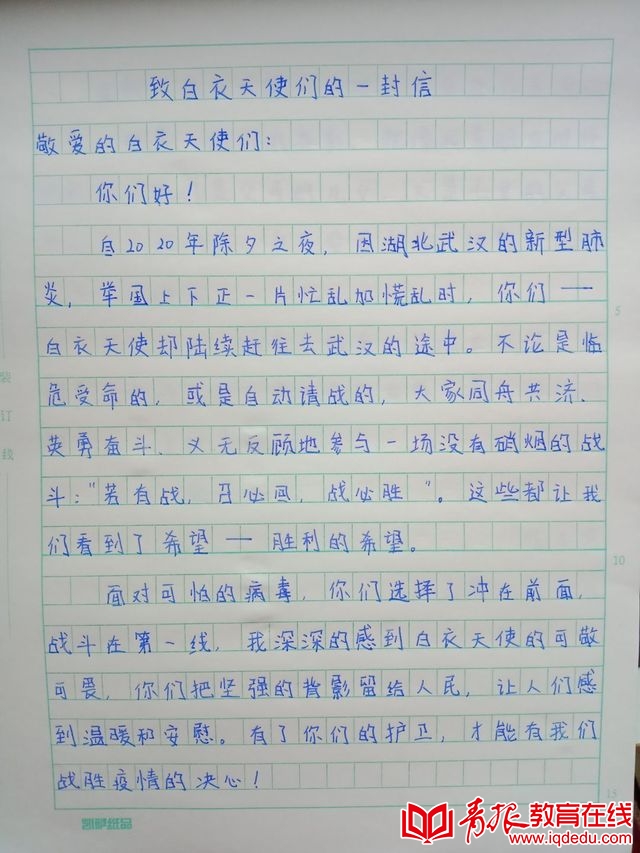 致白衣天使们的一封信
敬爱的白衣天使们：
你们好！
自2020年除夕之夜，因湖北武汉的新型肺
炎，举国上下正一片忙乱加慌乱时，你们——
白衣天使却陆续赶往去武汉的途中。不论是临
危受命的，或是自动请战的，大家同舟共济、
英勇奋斗、义无反顾地参与一场没有硝烟的战
斗："若有战，召必回，战必胜"。这些都让我
们看到了希望——胜利的希望。
面对可怕的病毒，你们选择了冲在前面，
战斗在第一线，我深深的感到白衣天使的可敬
可畏，你们把坚强的背影留给人民，让人们感
到温暖和安慰。有了你们的护卫，才能有我们
战胜疫情的决心！
装
订
线
5
10
15
凯萨纸品
青报教育在线
www.iqdedu.com